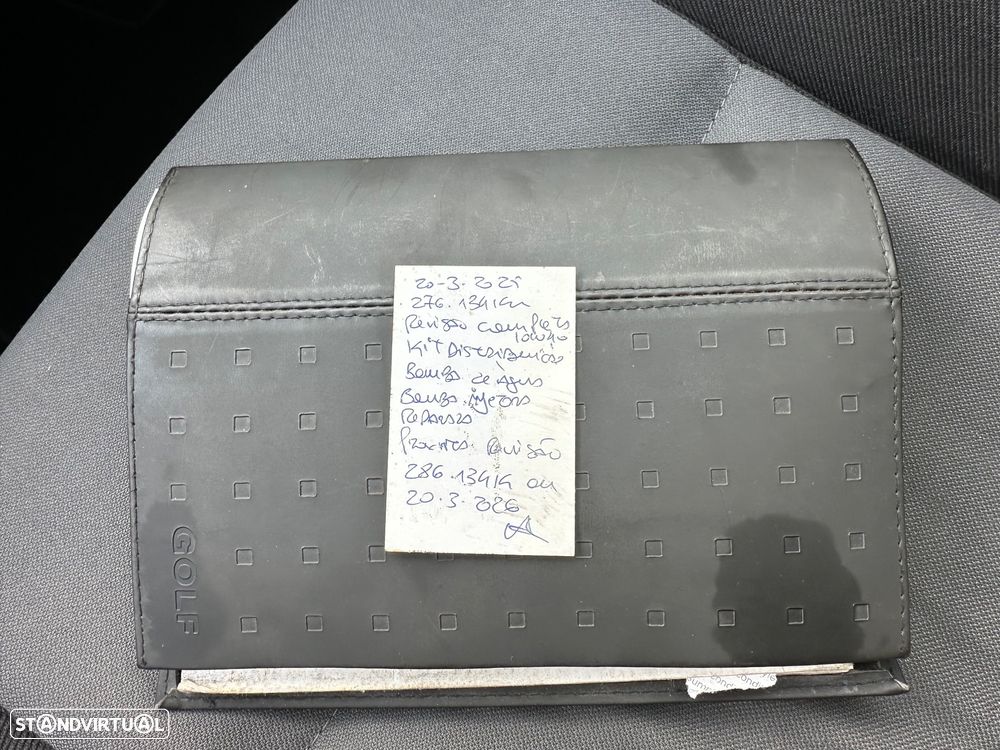 20-3-2025
276.134 Km
Revisão completa
10W40
Kit Distribuição
Bomba de Água
Bomba injetora
Reparada
Proxima Revisão
286.134 K ou
20.3.2026
GOLF
STANDVIRTUAL